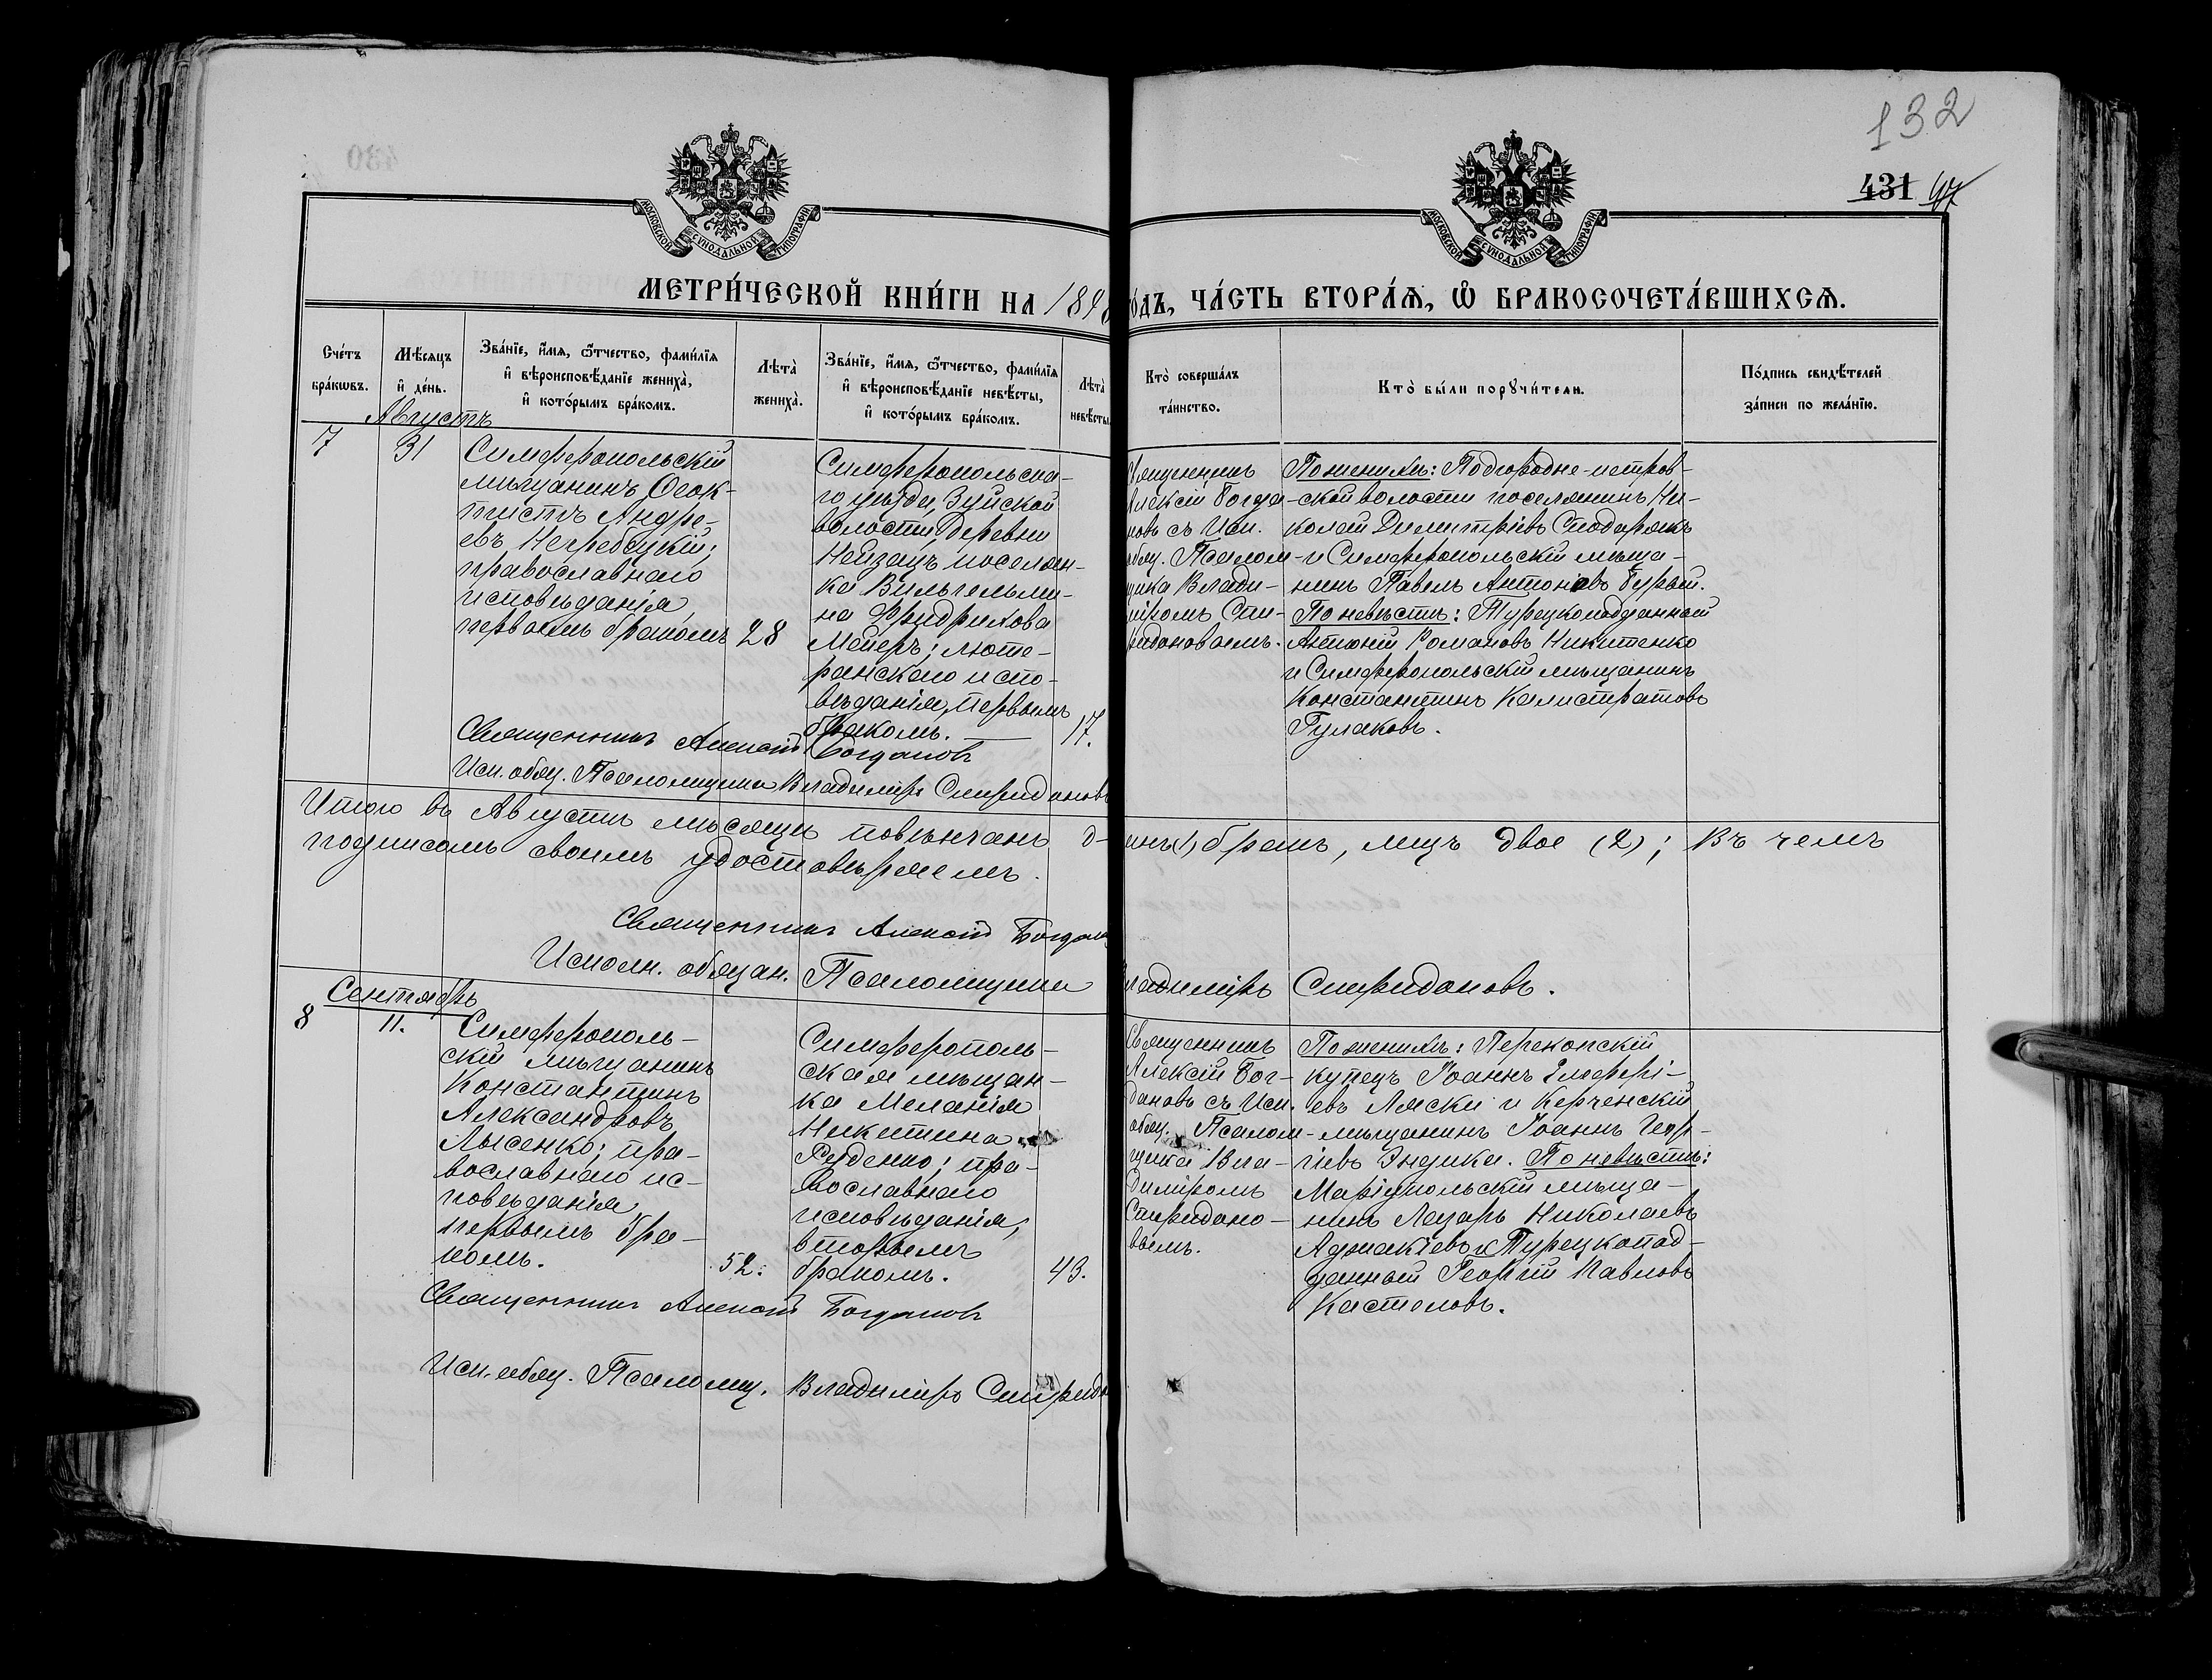 132
431 47
МОСКОВСКОЙ СѴНОДАЛЬНОЙ ТИПОГРАФІИ
МОСКОВСКОЙ СѴНОДАЛЬНОЙ ТИПОГРАФІИ
МЕТРИ́ЧЕСКОЙ КНИ́ГИ НА 1898
ÓДЪ, ЧА́СТЬ ВТОРА́Ѧ, Ѽ БРАКОСОЧЕТА́ВШИХСѦ.
Сче́тъ
бра́кѡвъ.
Мѣ́сяцъ
и҆ де́нь.
Зва́нїе, и҆́мѧ, ѻ҆́тчество, фами́лїѧ
и҆ вѣроисповѣ́данїе жениха̀,
и҆ кото́рымъ бра́комъ.
Лѣта̀
жениха̀.
Зва́нїе, и҆́мѧ, ѻ҆́тчество, фами́лїѧ
и҆ вѣроисповѣ́данїе невѣ́сты,
и҆ кото́рымъ бра́комъ.
Лѣта̀
невѣ́сты.
Кто̀ соверша́лъ
та́инство.
Кто̀ бы́ли порꙋчи́тели.
По́дпись свидѣ́телей
за́писи по жела́нїю.
Августъ
7
31
Симферопольскій
мѣщанинъ Ѳеок-
тистъ Андре-
евъ Негребецкій;
православнаго
исповѣданія,
первымъ бракомъ
28
Симферопольска-
го уѣзда, Зуйской
волости деревни
Нейзацъ поселян-
ка Вильгельми-
на Фридрихова
Мейеръ; люте-
ранскаго испо-
вѣданія, первымъ
бракомъ.
17.
Священникъ
Алексій Богда-
новъ съ Исп.
обяз. Псалом-
щика Влади-
міромъ Спи-
ридоновымъ.
По женихѣ: Подгородне-петров-
ской волости поселянинъ Ни-
колай Димитріевъ Сподарякъ
и Симферопольскій мѣща-
нинъ Павелъ Антоновъ Бурый.
По невѣстѣ: Турецкоподданный
Антоній Романовъ Никитенко
и Симферопольскій мѣщанинъ
Константинъ Калистратовъ
Гулаковъ.
Священникъ Алексій Богдановъ
Исп. обяз. Псаломщика Владиміръ Спиридоновъ
Итого въ Августѣ мѣсяцѣ повѣнчанъ о-динъ (1) бракъ, лицъ двое (2); въ чемъ
подписомъ своимъ удостовѣряемъ.
Священникъ Алексій Богданов
Исполн. обязан. Псаломщика Владиміръ Спиридоновъ.
Сентябрь
8
11.
Симферополь-
скій мѣщанинъ
Константинъ
Александровъ
Лысенко; пра-
вославнаго ис-
повѣданія
первымъ бра-
комъ.
52.
Симферополь-
ская мѣщан-
ка Меланія
Никитина
Руденко; пра-
вославнаго
исповѣданія,
вторымъ
бракомъ.
43.
Священникъ
Алексій Бог-
дановъ съ Исп.
обяз. Псалом-
щика Вла-
диміромъ
Спиридоно-
вымъ.
По женихѣ: Перекопскій
купецъ Іоаннъ Елефері-
евъ Ляски и Керченскій
мѣщанинъ Іоаннъ Геор-
гіевъ Эндика. По невѣстѣ:
Маріупольскій мѣща-
нинъ Лазарь Николаевъ
Аджакіевъ и Турецкопод-
данный Георгій Павловъ
Кастеловъ.
Священникъ Алексій Богдановъ
Исп. обяз. Псаломщ. Владиміръ Спиридо